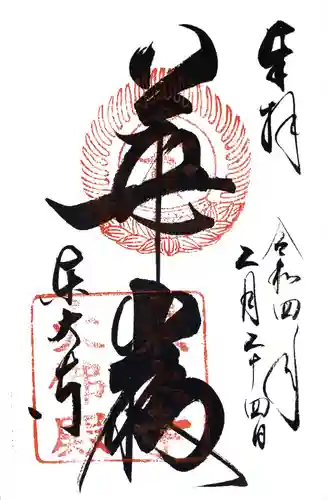 奉拝
令和四年
二月二十四日
華厳
東大寺
大仏殿